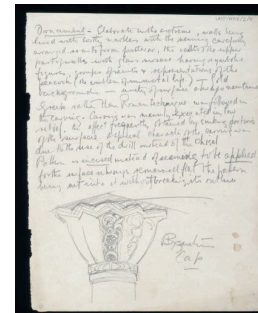 Ornament – Elaborate in the extreme, walls being
lined with costly marbles with the veining carefully
arranged so as to form patterns, the vaults & the upper
parts of walls with glass mosaic having symbolic
figures, groups of saints & representations of the
peacock (the emblem of immortal life) – (Gold
background) –
Greek rather than Roman technique was followed in
the carving. Carving was mainly executed in low
relief, the effect frequently obtained by sinking portions
of the surfaces.
due to the use of the drill instead of the chisel
Pattern is incised instead of seeming to be applied
for the surface is always
being cut into it without breaking its outline
Byzantine
Cap